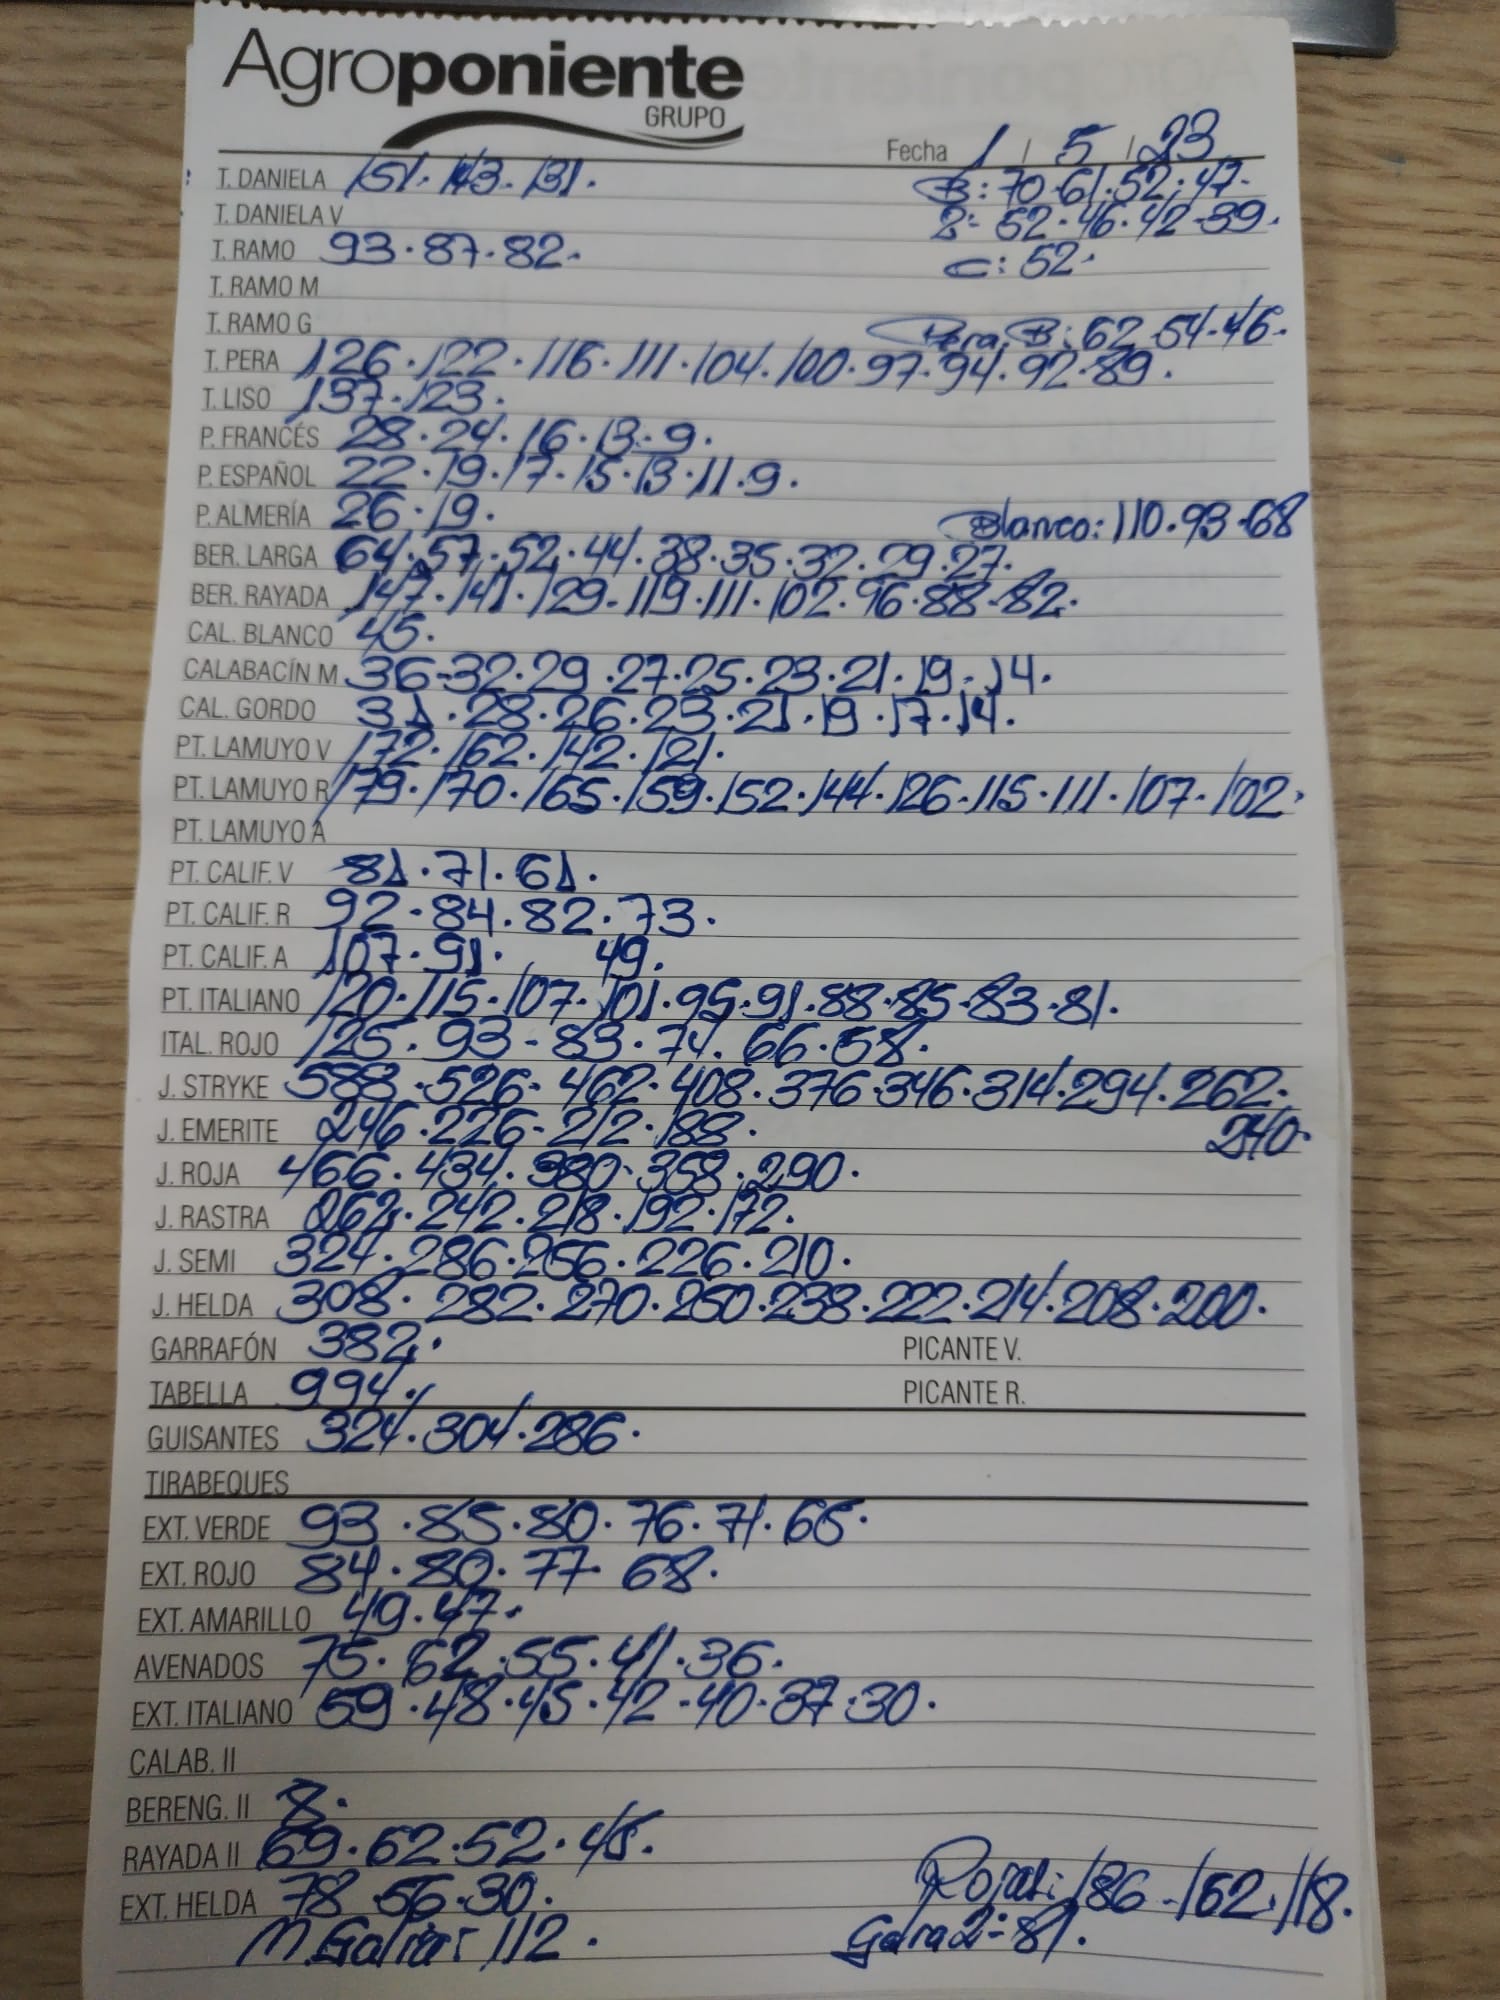 Agroponiente
GRUPO
Fecha 1 / 5 / 23
T. DANIELA 151. 143. 131. B: 70-61.52.47-
T. DANIELA V 2: 52.46.42-39.
T. RAMO 93.87.82. C: 52.
T. RAMO M
T. RAMO G Pera B: 62.54-46.
T. PERA 126.122.116.111.104.100.97.94.92.89.
T. LISO 137.123.
P. FRANCÉS 28.24.16.13-9.
P. ESPAÑOL 22.19.17.15.13.11.9.
P. ALMERÍA 26.19. Blanco: 110.93.68
BER. LARGA 64.57.52.44.38.35.32.29.27.
BER. RAYADA 147.141.129-119.111.102.96.88-82.
CAL. BLANCO 45.
CALABACÍN M 36-32.29.27.25.23.21.19.14.
CAL. GORDO 31.28.26.23.21.19.17.14.
PT. LAMUYO V 172.162.142.121.
PT. LAMUYO R 179.170.165.159.152.144.126.115.111.107.102.
PT. LAMUYO A
PT. CALIF. V 81.71.61.
PT. CALIF. R 92-84.82.73.
PT. CALIF. A 107.91. 49.
PT. ITALIANO 120.115.107.101.95.91.88.85.83.81.
ITAL. ROJO 125.93-83.74.66.58.
J. STRYKE 588.526-462.408.376.346.314.294.262.
240.
J. EMERITE 246.226-212.188.
J. ROJA 466.434.380.358.290.
J. RASTRA 262.242.218.192.172.
J. SEMI 324.286.256.226.210.
J. HELDA 308.282.270.250.238.222.214.208.200.
GARRAFÓN 382. PICANTE V.
TABELLA 994. PICANTE R.
GUISANTES 324.304.286.
TIRABEQUES
EXT. VERDE 93.85.80.76.71.65.
EXT. ROJO 84.80.77 68.
EXT. AMARILLO 49.47.
AVENADOS 75.62.55.41.36.
EXT. ITALIANO 59.48.45.42-40.37.30.
CALAB. II
BERENG. II 8.
RAYADA II 69.62.52.45.
EXT. HELDA 78.56.30. 186-162.118.
112. 2: 81.